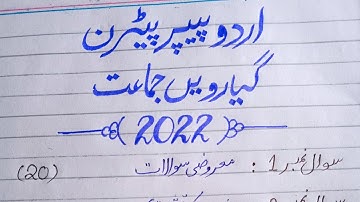 اردو پیپر پیٹرن
گیارویں جماعت
(2022)
سوال نمبر 1 : معروضی سوالات (20)
سوال نمبر